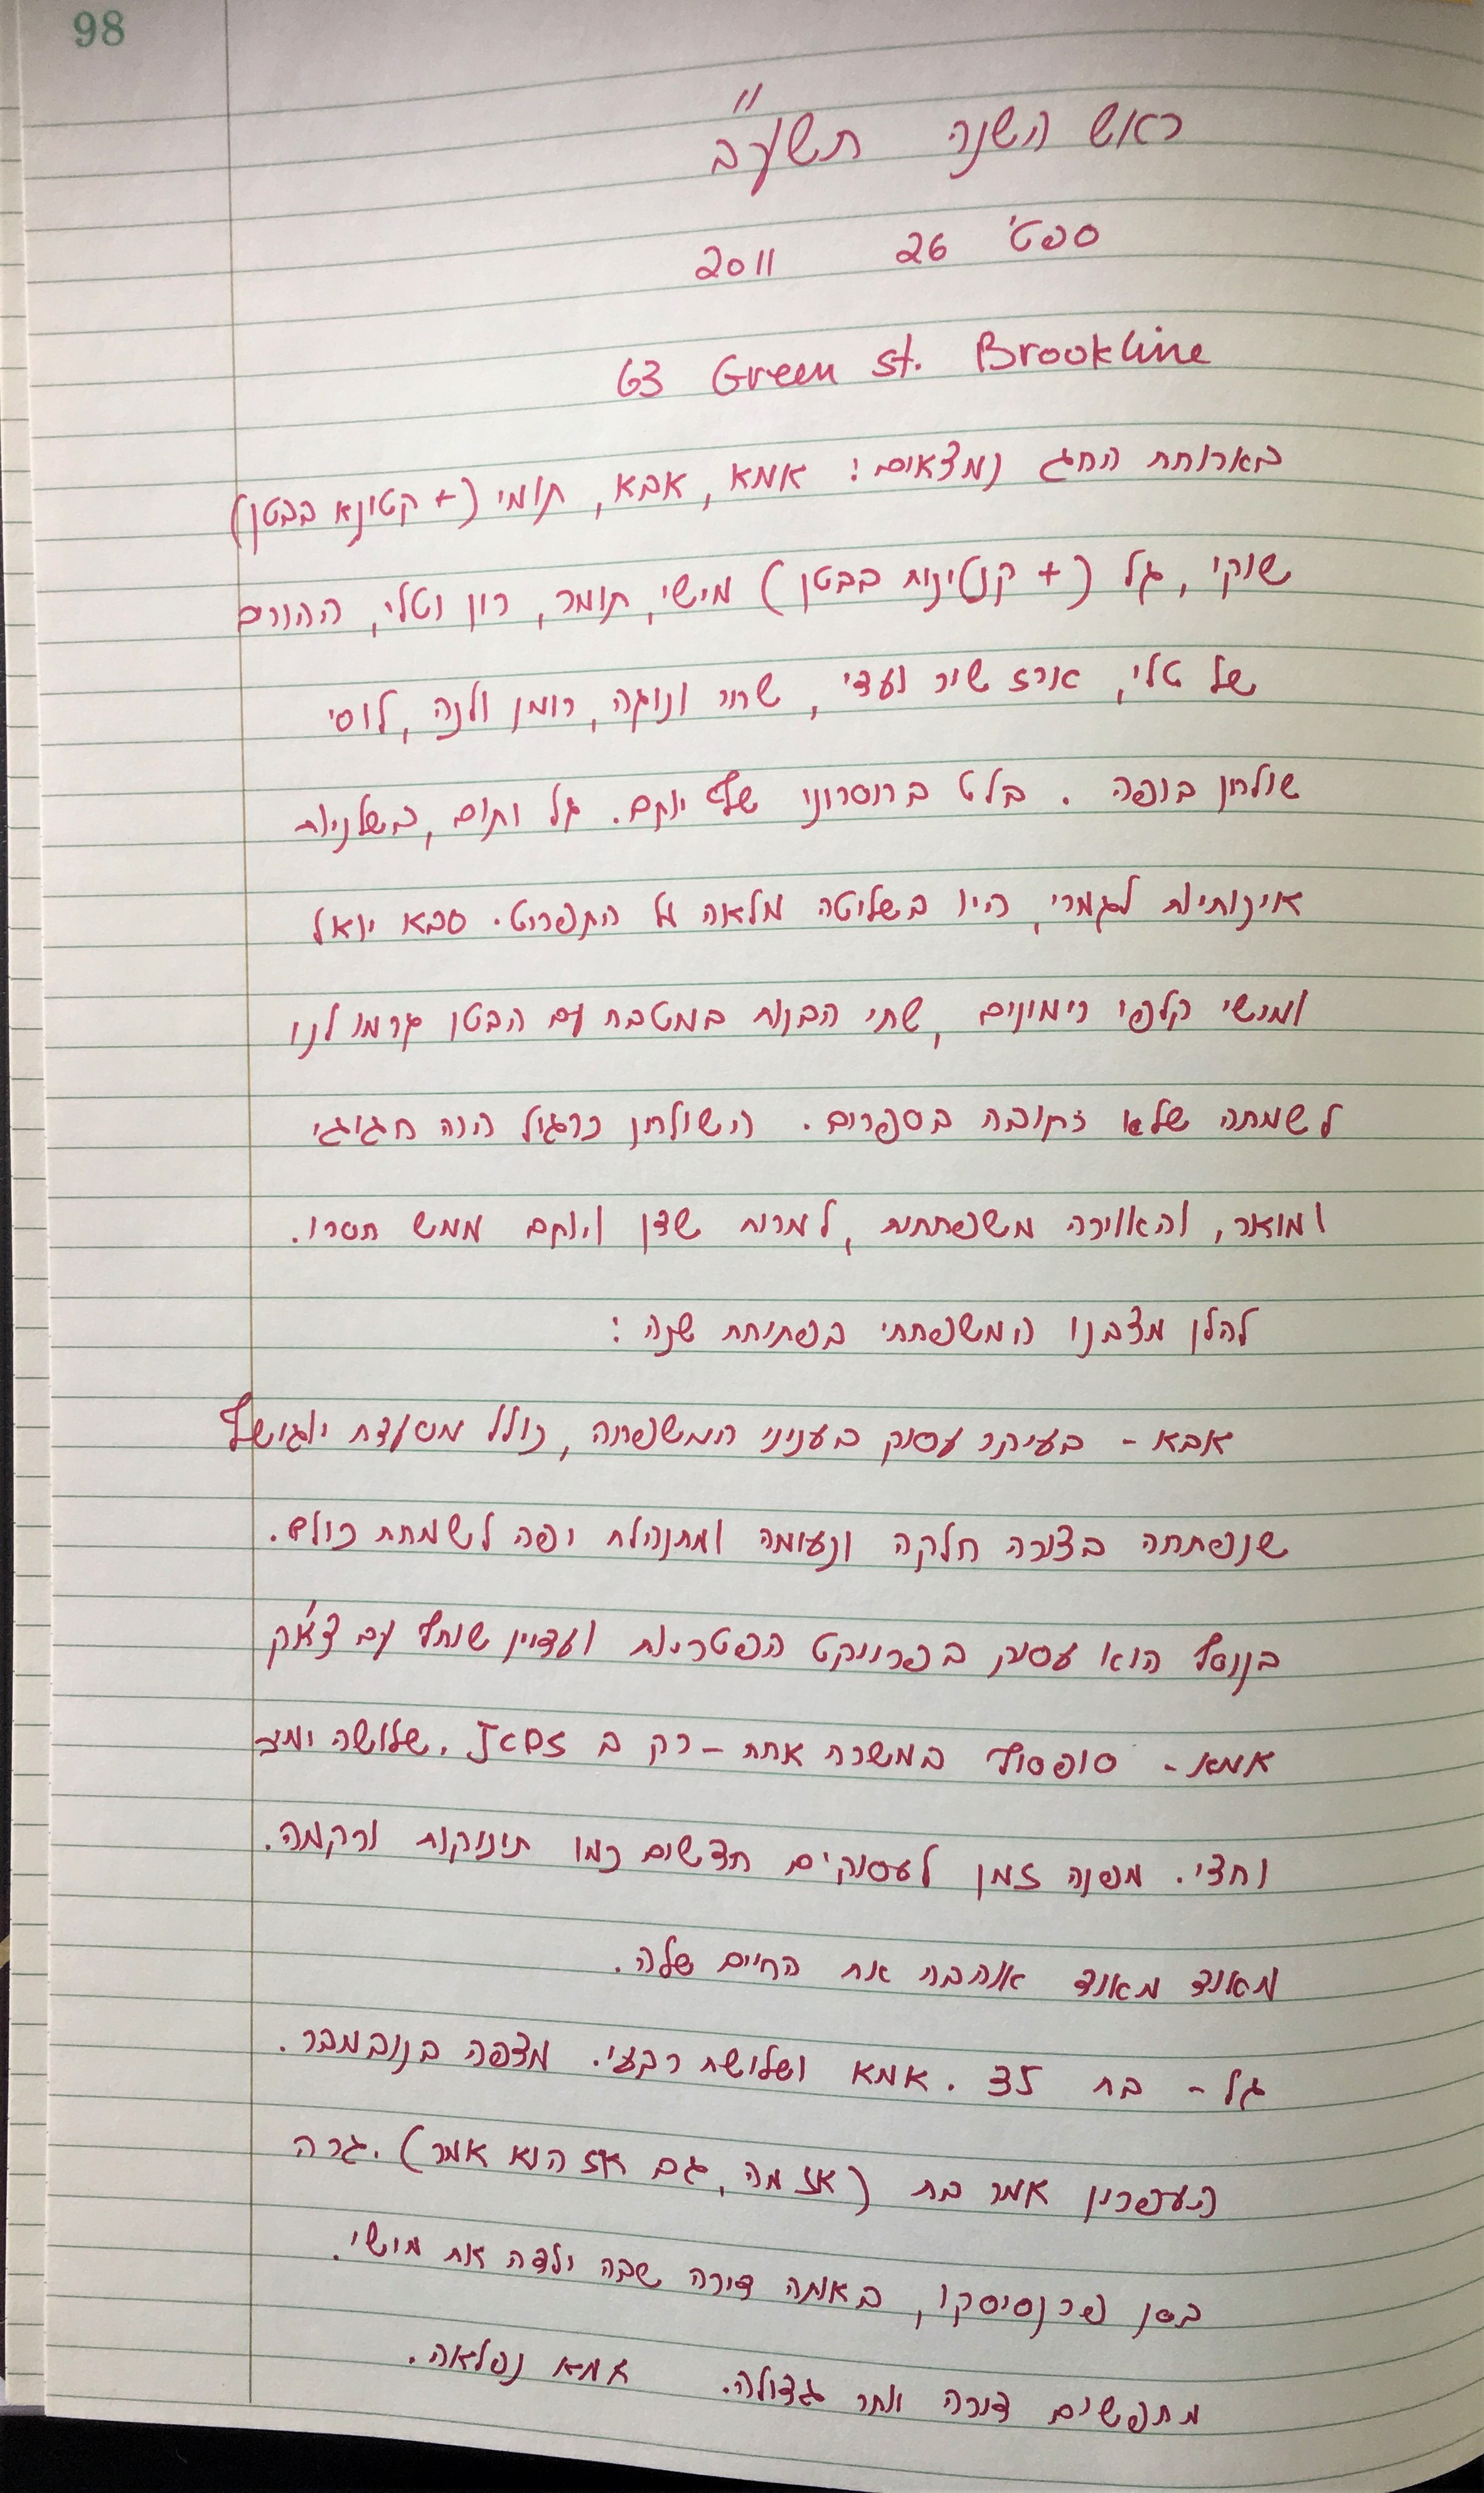 98
ראש השנה תשע"ב
ספט' 26 2011
63 Green st. Brookline
בארוחת החג נמצאים: אמא, אבא, תומי (+ קטונא בבטן)
שוקי, גל (+ קטינות בבטן) מישי, תומר, רון וטלי, ההורים
של טלי, ארז שיר ועדי, שחר ונוגה, רומן ולנה, לוסי
שולחן בופה. בלט בחסרונו שף יותם. גל ותום, בשלניות
איכותיות לגמרי, היו בשליטה מלאה על התפריט. סבא יואל
ומישי קלפו רימונים, שתי הבנות במטבח עם הבטן גרמו לנו
לשמחה שלא כתובה בספרים. השולחן כרגיל היה חגיגי
ומואר, והאווירה משפחתית, למרות שדן ויותם ממש חסרו.
להלן מצבנו המשפחתי בפתיחת שנה:
אבא - בעיקר עסוק בעניני המשפחה, כולל מסעדת
שנפתחה בצורה חלקה ונעימה ומתנהלת יפה לשמחת כולם.
בנוסף הוא עסוק בפרוייקט הפטריות ועדיין שותף עם צ'אק
אמא - סופסוף במשרה אחת - רק ב JCDS. שלושה ימי
וחצי. מפנה זמן לעסוקים חדשים כמו תינוקות ורקמה.
מאוד מאוד אוהבת את החיים שלה.
גל - בת 35. אמא ושלושת רבעי. מצפה בנובמבר.
העפרון אמר בת (אז מה, גם אז הוא אמר). גרה
בסן פרנסיסקו, באותה דירה שבה ילדה את מישי.
מחפשים דירה יותר גדולה. אמא נפלאה.